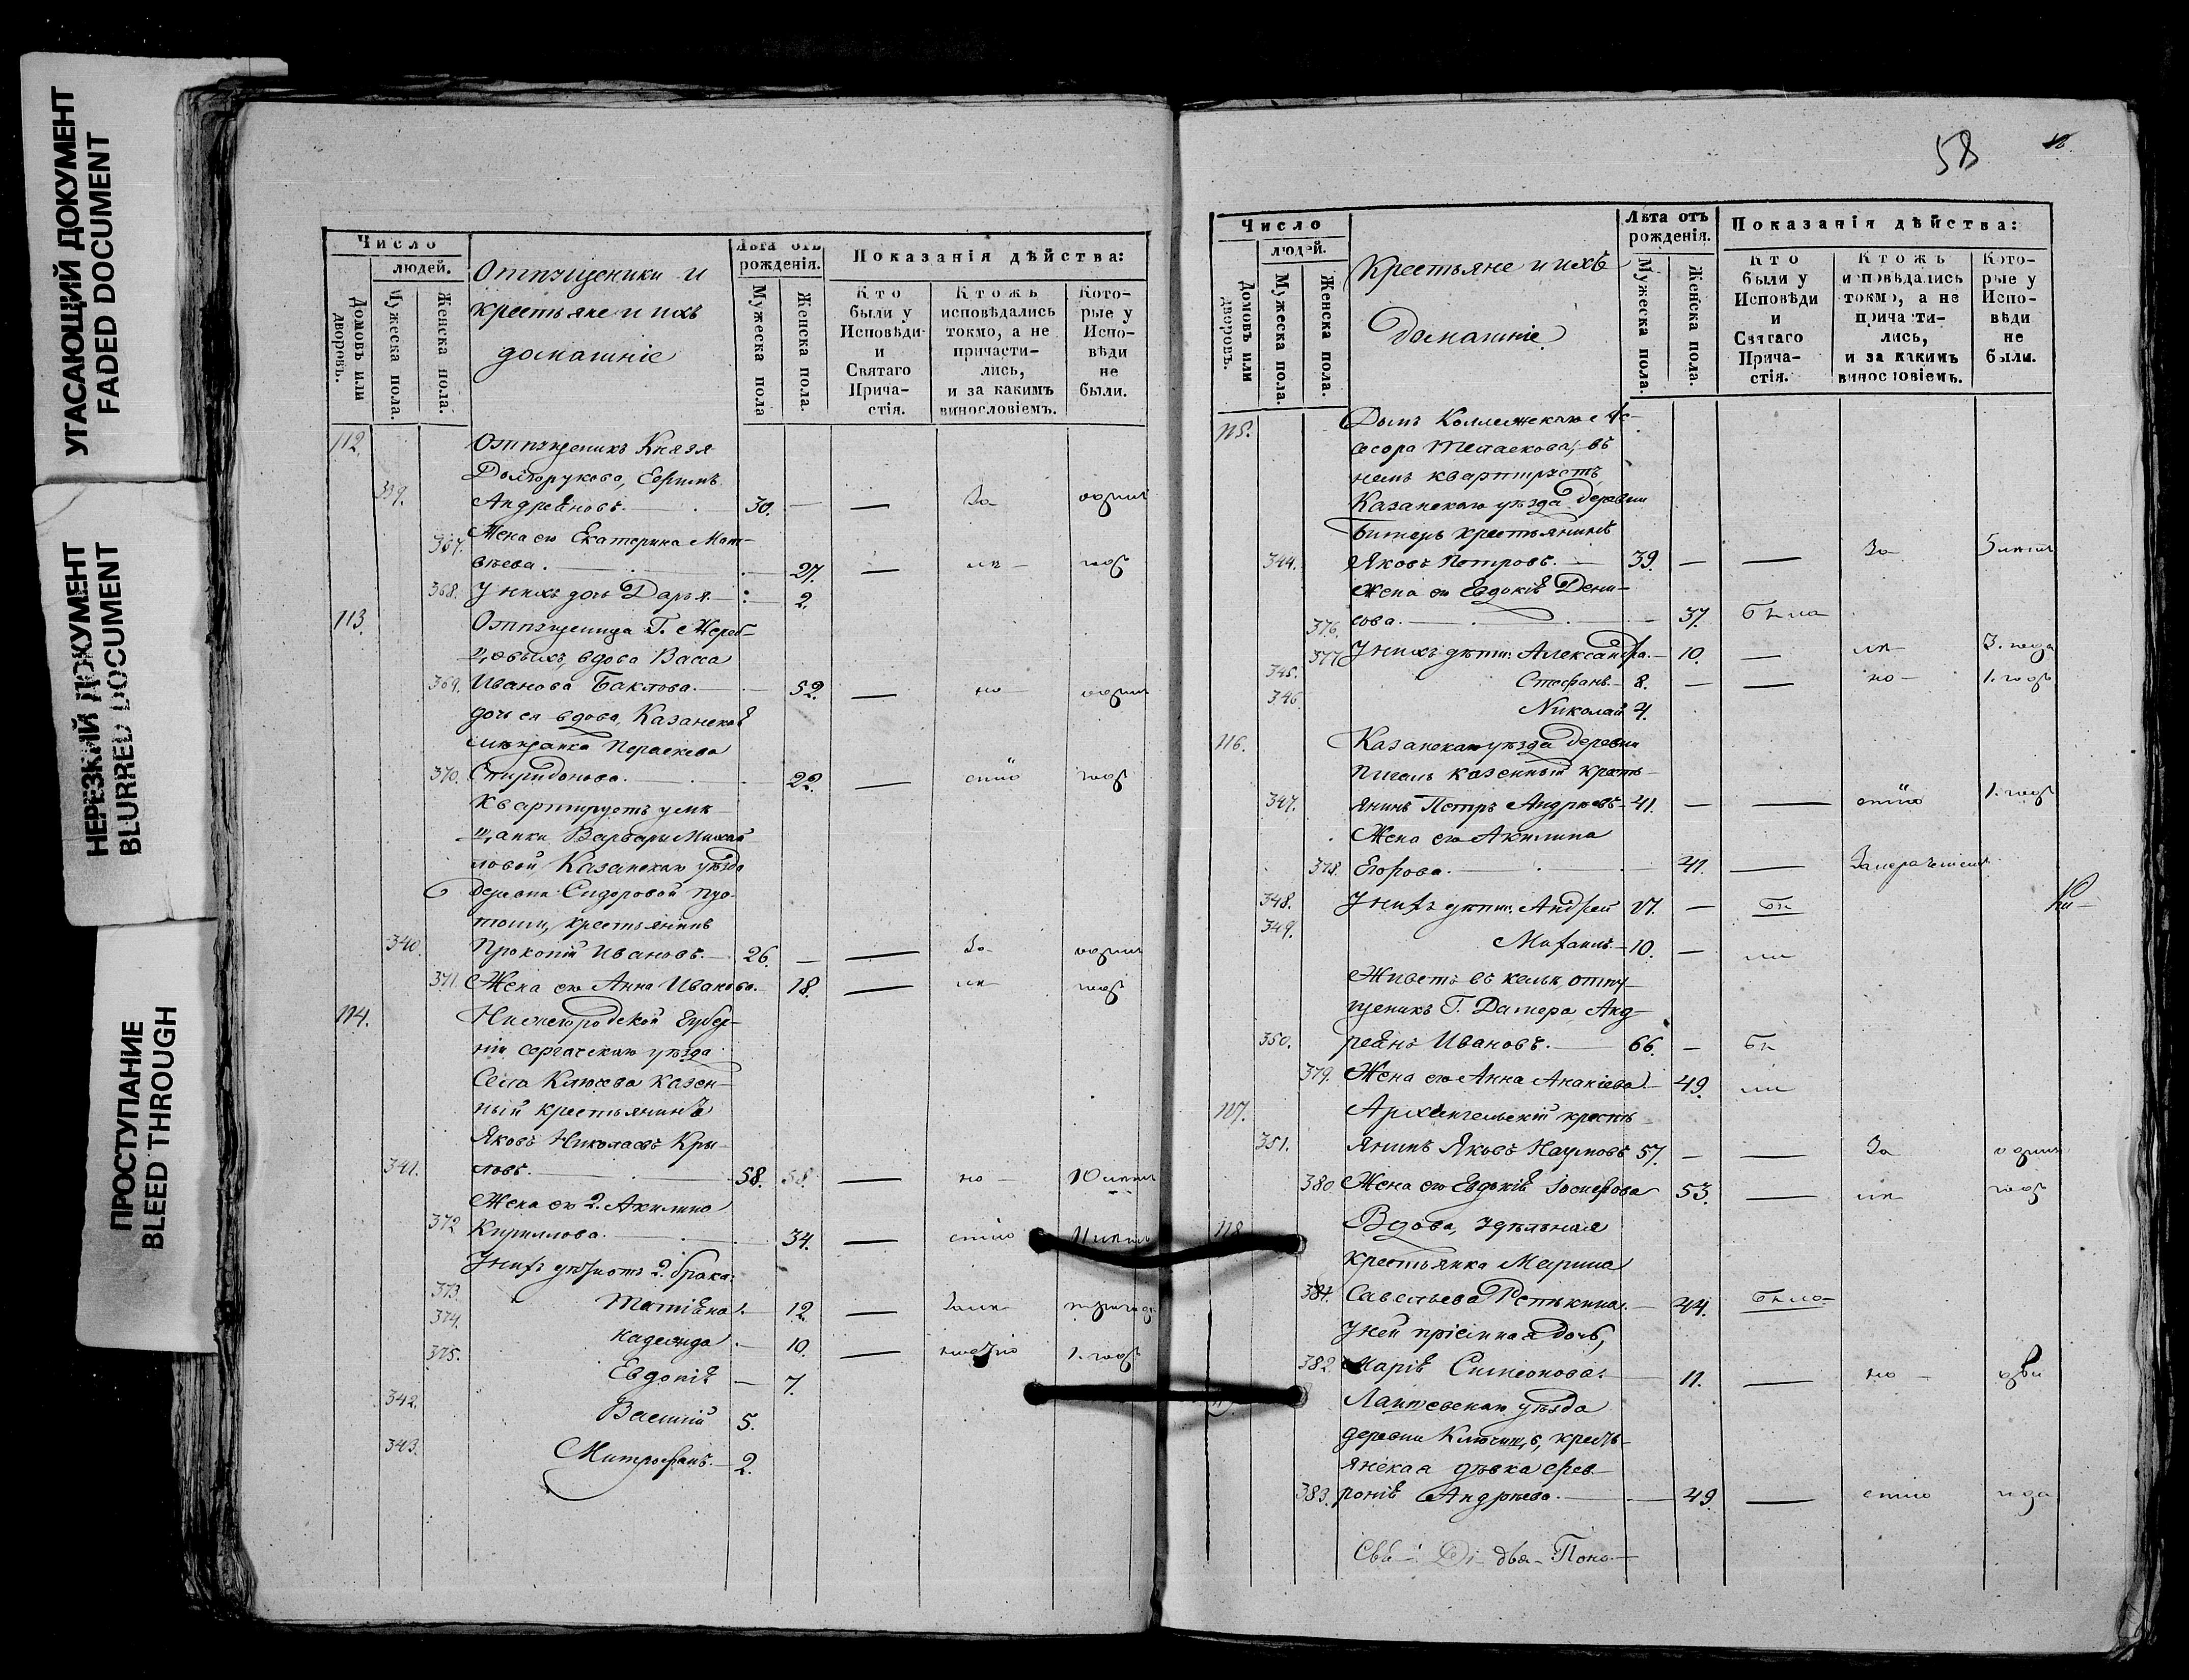 УГАСАЮЩИЙ ДОКУМЕНТ
FADED DOCUMENT
НЕРЕЗКИЙ ДОКУМЕНТ
BLURRED DOCUMENT
ПРОСТУПАНИЕ
BLEED THROUGH
Число
людей.
Домовъ или дворовъ.
Мужеска пола.
Женска пола.
Отпущеники и
крестьяне и ихъ
домашніе
Лѣта отъ
рожденія.
Мужеска пола
Женска пола.
Показанія дѣйства:
Кто
были у
Исповѣди
и
Святаго
Прича-
стія.
Ктожъ
исповѣдались
токмо, а не
причасти-
лись,
и за какимъ
винословіемъ.
Кото-
рые у
Испо-
вѣди
не
были.
112. Отпущеникъ Князя
Долгорукова, Ефримъ
339. Андреяновъ. 30. — — За один
367. Жена его Екатерина Мат-
вѣева. 27. —
368. У нихъ дочь Дарья 2.
113. Отпущеница Г. Жереб-
цовыхъ, вдова Васса
369. Иванова Баклова. 52. — но один
дочь ея вдова, Казанская
мѣщанка Параскева
370. Спиридонова. 22. — стію год
Квартируетъ у мѣ-
щанки Варвары Михай
ловой Казанскаго уѣзда
деревни Сидоровой Пус-
тоши, крестьянинъ
340. Прокопій Ивановъ. 26. — — За один
371. Жена его Анна Иванова. 18. — год
114. Нижегородской Губер-
ніи Сергачскаго уѣзда
Села Ключева казен-
ный крестьянинъ
Яковъ Николаевъ Кры-
341. ловъ. 58. 58. — но 10
Жена его 2. Акилина
372 Кириллова. 34. — стію
У нихъ дѣти отъ 2. брака:
373. Татіана. 12. —
374. Надежда. 10. — 1. год
375. Евдокія — 7.
342. Василій 5.
343. Митрофанъ. 2.
58
Число
людей.
Домовъ или дворовъ.
Мужеска пола.
Женска пола.
Крестьяне и ихъ
Домашніе.
Лѣта отъ
рожденія.
Мужеска пола.
Женска пола.
Показанія дѣйства:
Кто
были у
Исповѣди
и
Святаго
Прича-
стія.
Ктожъ
исповѣдались
токмо, а не
причасти-
лись,
и за какимъ
винословіемъ.
Кото-
рые у
Испо-
вѣди
не
были.
115. Домъ Коллежскаго Ас-
сесора въ
немъ квартируетъ
Казанскаго уѣзда деревни
крестьянинъ
344. Яковъ Петровъ. 39. — — За 5
Жена его Евдокія Дени-
376. сова. 37. была
377 У нихъ дѣти: Александра. 10. — 3. года
345. Стефанъ. 8. — — но 1. год
346. Николай 4.
116. Казанскаго уѣзда деревни
казенный кресть-
347. янинъ Петръ Андреевъ 41. — — стію 1. год
Жена его Акилина
378. Егорова. 41. —
348. У нихъ дѣти: Андрей 17. — бы
349. Михаилъ. 10. — ли
Живетъ въ кельи отпу-
щеникъ Г. Анд-
350. реянъ Ивановъ. 66. — бы
379. Жена его Анна Акакіева. 49. ли
117. Архангельскій кресть-
351. янинъ Яковъ Наумовъ 57. — — За один
380 Жена его Евдокія Іосифова 53. — год
118 Вдова, удѣльная
крестьянка Марина
381. Савельева Репкина. 44. была
У ней пріемная дочь,
382 Марія Симеонова. 11. — но два
Лаишевскаго уѣзда
деревни крестъ-
янская дѣвка Фев-
383. ронія Андреева. 49. — стію года